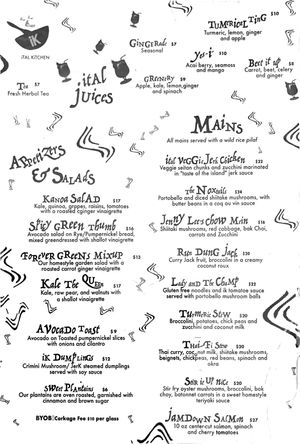 IK
iTAL KITCHEN
Tea $7
Fresh Herbal Tea
ital
Juices
Gingerade $7
Seasonal
Greenery $9
Apple, kale, lemon, ginger
and spinach
Tumerical Ting $10
Turmeric, lemon, ginger
and apple
yes-i $10
Acai berry, seamoss
and mango
Beet it up $8
Carrot, beet, celery
and ginger
Appetizers
& Salads
Kanoa Salad $17
Kale, quinoa, grapes, raisins, tomatoes
with a roasted ginger vinagrette
Spicy Green Thumb $16
Avocado salad on Rye/Pumpernickel bread,
mixed greendressed with shallot vinagrette
Forever Greens Mixup $13
Our homestyle garden salad with a
roasted carrot ginger vinagrette
Kale The Queen $17
Kale, raw pear, and walnuts with
a shallot vinagrette
Avocado Toast $9
Avocado on Toasted pumpernickel slices
with onions and cilantro
ik Dumplings $12
Crimini Mushroom/ JerK steamed dumplings
served with soy sauce
Sweet Plantains $6
Our plantains are oven roasted, garnished with
cinnamon and brown sugar
BYOB|Corkage Fee $10 per glass
Mains
All mains served with a wild rice pilaf
ital Veggie Jerk Chicken $22
Veggie seitan chunks and zucchini marinated
in "taste of the island" jerk sauce
The Noxtails $24
Portobello and diced shiitake mushrooms, with
butter beans in a coq au vin sauce
Jenny Lees Chow Mein $16
Shiitake mushrooms, red cabbage, bak Choi,
carrots and Zucchini
Rude Dung Jack $20
Curry Jack fruit, broccolini in a creamy
coconut roux
Lady and The Champ $22
Gluten free noodles and a tomato sauce
served with portobello mushroom balls
Tumeric Stew $20
Broccolini, potatoes, chick peas and
zucchini and coconut milk
Thai-Fi Stew $20
Thai curry, coconut milk, shiitake mushrooms,
beignets, chickpeas, red beans, spinach
and okra
Stir it up Nice $20
Stir fry oyster mushrooms, broccolini, bok
choy, batonnet carrots in a sweet homestyle
teriyaki sauce
Jamdown Salmon $27
10 oz center-cut salmon, spinach
and tomato